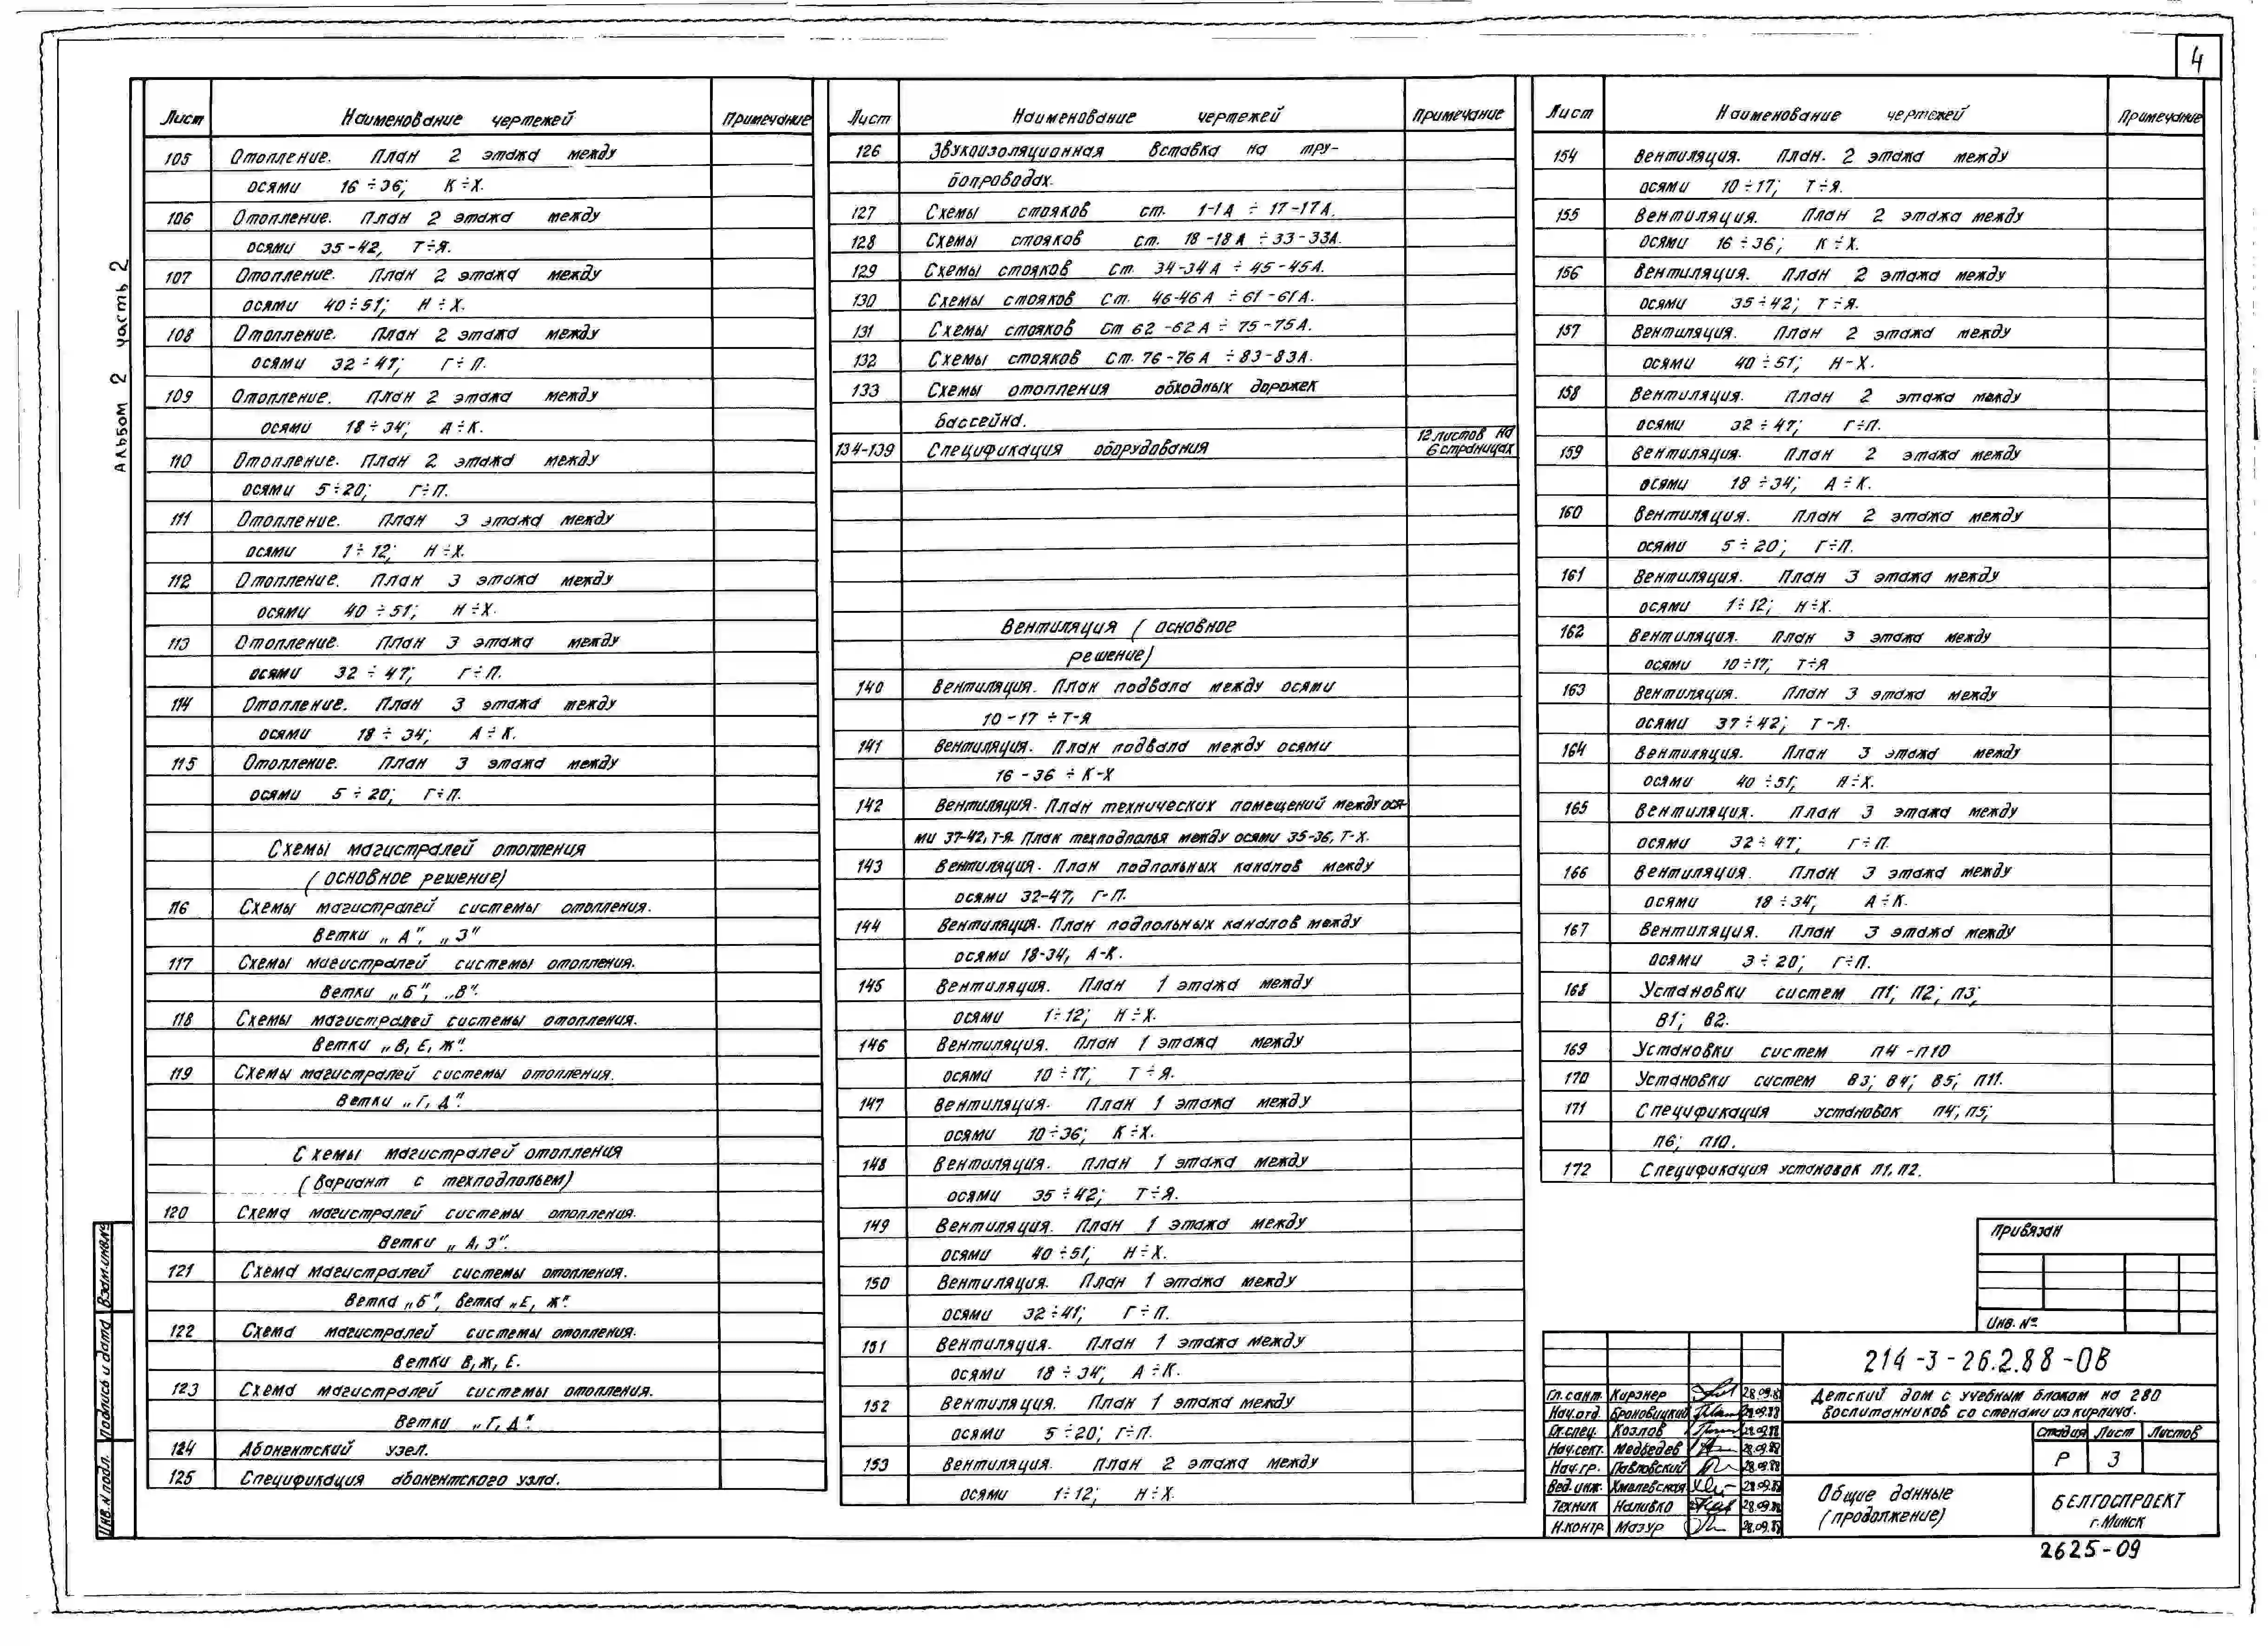 4
Альбом 2 часть 2
Лист Наименование чертежей Примечание
105 Отопление. План 2 этажа между
осями 16÷36; К÷Х.
106 Отопление. План 2 этажа между
осями 35-42, Т÷Я.
107 Отопление. План 2 этажа между
осями 40÷51; Н÷Х.
108 Отопление. План 2 этажа между
осями 32÷47; Г÷П.
109 Отопление. План 2 этажа между
осями 18÷34; А÷К.
110 Отопление. План 2 этажа между
осями 5÷20; Г÷П.
111 Отопление. План 3 этажа между
осями 1÷12; Н÷Х.
112 Отопление. План 3 этажа между
осями 40÷51; Н÷Х.
113 Отопление. План 3 этажа между
осями 32÷47; Г÷П.
114 Отопление. План 3 этажа между
осями 18÷34; А÷К.
115 Отопление. План 3 этажа между
осями 5÷20; Г÷П.
Схемы магистралей отопления
(основное решение)
116 Схемы магистралей системы отопления.
Ветки „А", „З"
117 Схемы магистралей системы отопления.
Ветки „Б", „В".
118 Схемы магистралей системы отопления.
Ветки „В, Е, Ж".
119 Схемы магистралей системы отопления.
Ветки „Г, Д".
Схемы магистралей отопления
(Вариант с техподпольем)
120 Схема магистралей системы отопления.
Ветки „А, З".
121 Схема магистралей системы отопления.
Ветка „Б", ветка „Е, Ж".
122 Схема магистралей системы отопления.
Ветки В, Ж, Е.
123 Схема магистралей системы отопления.
Ветки „Г, Д".
124 Абонентский узел.
125 Спецификация абонентского узла.
Лист Наименование чертежей Примечание
126 Звукоизоляционная вставка на тру-
бопроводах.
127 Схемы стояков ст. 1-1А ÷ 17-17А.
128 Схемы стояков ст. 18-18А ÷ 33-33А.
129 Схемы стояков Ст. 34-34А ÷ 45-45А.
130 Схемы стояков Ст. 46-46А ÷ 61-61А.
131 Схемы стояков Ст 62-62А ÷ 75-75А.
132 Схемы стояков Ст. 76-76А ÷ 83-83А.
133 Схемы отопления обходных дорожек
бассейна.
134-139 Спецификация оборудования 12 листов на
6 страницах
Вентиляция (основное
решение)
140 Вентиляция. План подвала между осями
10-17 ÷ Т-Я
141 Вентиляция. План подвала между осями
16-36 ÷ К-Х
142 Вентиляция. План технических помещений между ося-
ми 37-42, Т-Я. План техподполья между осями 35-36, Т-Х.
143 Вентиляция. План подпольных каналов между
осями 32-47, Г-П.
144 Вентиляция. План подпольных каналов между
осями 18-34, А-К.
145 Вентиляция. План 1 этажа между
осями 1÷12; Н÷Х.
146 Вентиляция. План 1 этажа между
осями 10÷17; Т÷Я.
147 Вентиляция. План 1 этажа между
осями 10÷36; К÷Х.
148 Вентиляция. План 1 этажа между
осями 35÷42; Т÷Я.
149 Вентиляция. План 1 этажа между
осями 40÷51; Н÷Х.
150 Вентиляция. План 1 этажа между
осями 32÷41; Г÷П.
151 Вентиляция. План 1 этажа между
осями 18÷34; А÷К.
152 Вентиляция. План 1 этажа между
осями 5÷20; Г÷П.
153 Вентиляция. План 2 этажа между
осями 1÷12; Н÷Х
Лист Наименование чертежей Примечание
154 Вентиляция. План. 2 этажа между
осями 10÷17; Т÷Я.
155 Вентиляция. План 2 этажа между
осями 16÷36; К÷Х.
156 Вентиляция. План 2 этажа между
осями 35÷42; Т÷Я.
157 Вентиляция. План 2 этажа между
осями 40÷51; Н-Х.
158 Вентиляция. План 2 этажа между
осями 32÷47; Г÷П.
159 Вентиляция. План 2 этажа между
осями 18÷34; А÷К.
160 Вентиляция. План 2 этажа между
осями 5÷20; Г÷П.
161 Вентиляция. План 3 этажа между
осями 1÷12; Н÷Х.
162 Вентиляция. План 3 этажа между
осями 10÷17; Т÷Я
163 Вентиляция. План 3 этажа между
осями 37÷42; Т-Я.
164 Вентиляция. План 3 этажа между
осями 40÷51; Н÷Х.
165 Вентиляция. План 3 этажа между
осями 32÷47; Г÷П.
166 Вентиляция. План 3 этажа между
осями 18÷34; А÷К.
167 Вентиляция. План 3 этажа между
осями 3÷20; Г÷П.
168 Установки систем П1; П2; П3;
В1; В2.
169 Установки систем П4-П10
170 Установки систем В3; В4; В5; П11.
171 Спецификация установок П4; П5;
П6; П10.
172 Спецификация установок П1, П2.
Привязан
Инв. №
214-3-26.2.88-ОВ
Гл.сант. Кирзнер 28.09.88
Нач.отд. Броновицкий 28.09.88
Гл.спец. Козлов 28.09.88
Нач.сект. Медведев 28.09.88
Нач.гр. Павловский 28.09.88
Вед.инж. Хмелевская 28.09.88
Техник Наливко 28.09.88
Н.контр. Мазур 28.09.88
Детский дом с учебным блоком на 280
воспитанников со стенами из кирпича.
Стадия Лист Листов
Р 3
Общие данные
(продолжение)
БЕЛГОСПРОЕКТ
г. Минск
2625-09
Взам.инв.№
Подпись и дата
Инв.№подл.